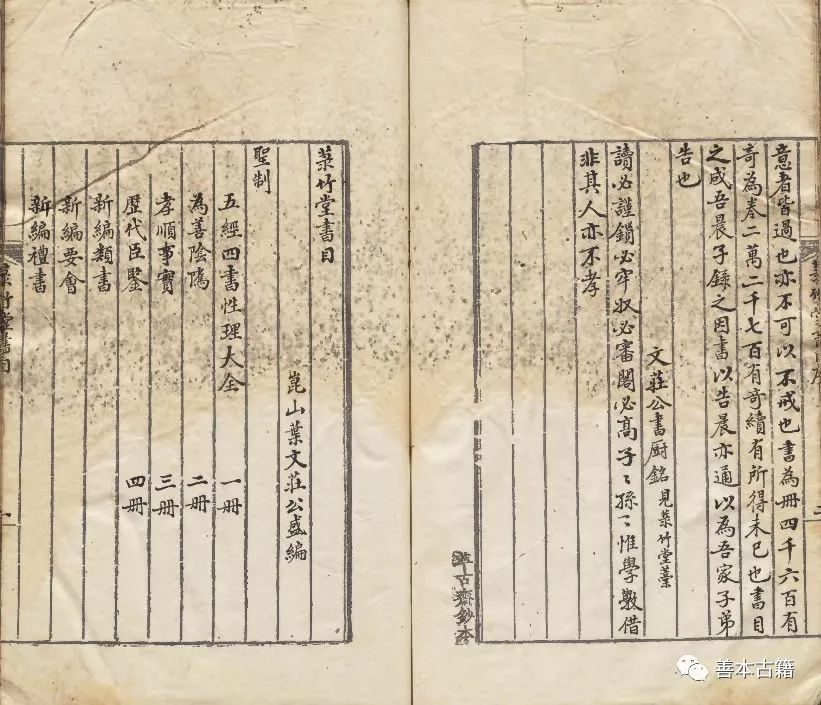 意者皆過也亦不可以不戒也書為冊四千六百有
奇為卷二萬二千七百有奇續有所得未已也書目
之成吾晨子錄之因書以告晨亦通以為吾家子弟
告也
文莊公書廚銘見菉竹堂藁
讀必謹鎖必牢收必審閣必高子〻孫〻惟學斆借
非其人亦不孝
菉竹堂書目
崑山葉文莊公盛編
聖制
五經四書性理大全 一冊
為善陰隲 二冊
孝順事實 三冊
歷代臣鑒 四冊
新編類書
新編要會
新編禮書
菉竹堂書目
善本古籍